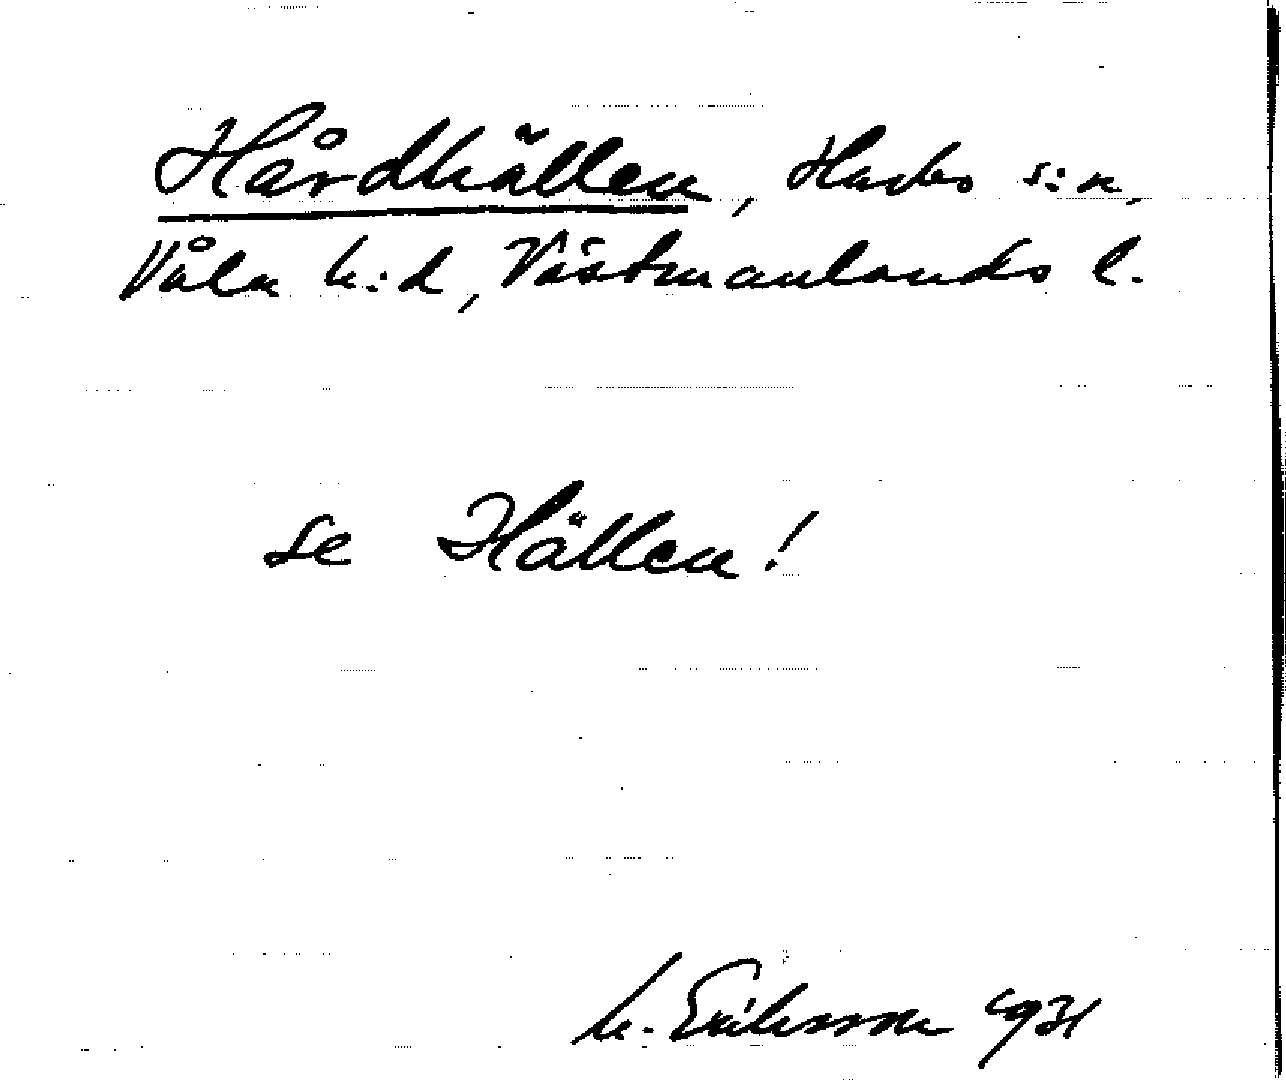 Hårdhällen, Harbo s:n,
Våla h:d, Västmanlands l.
se Hällen!
M. Eriksson 1931